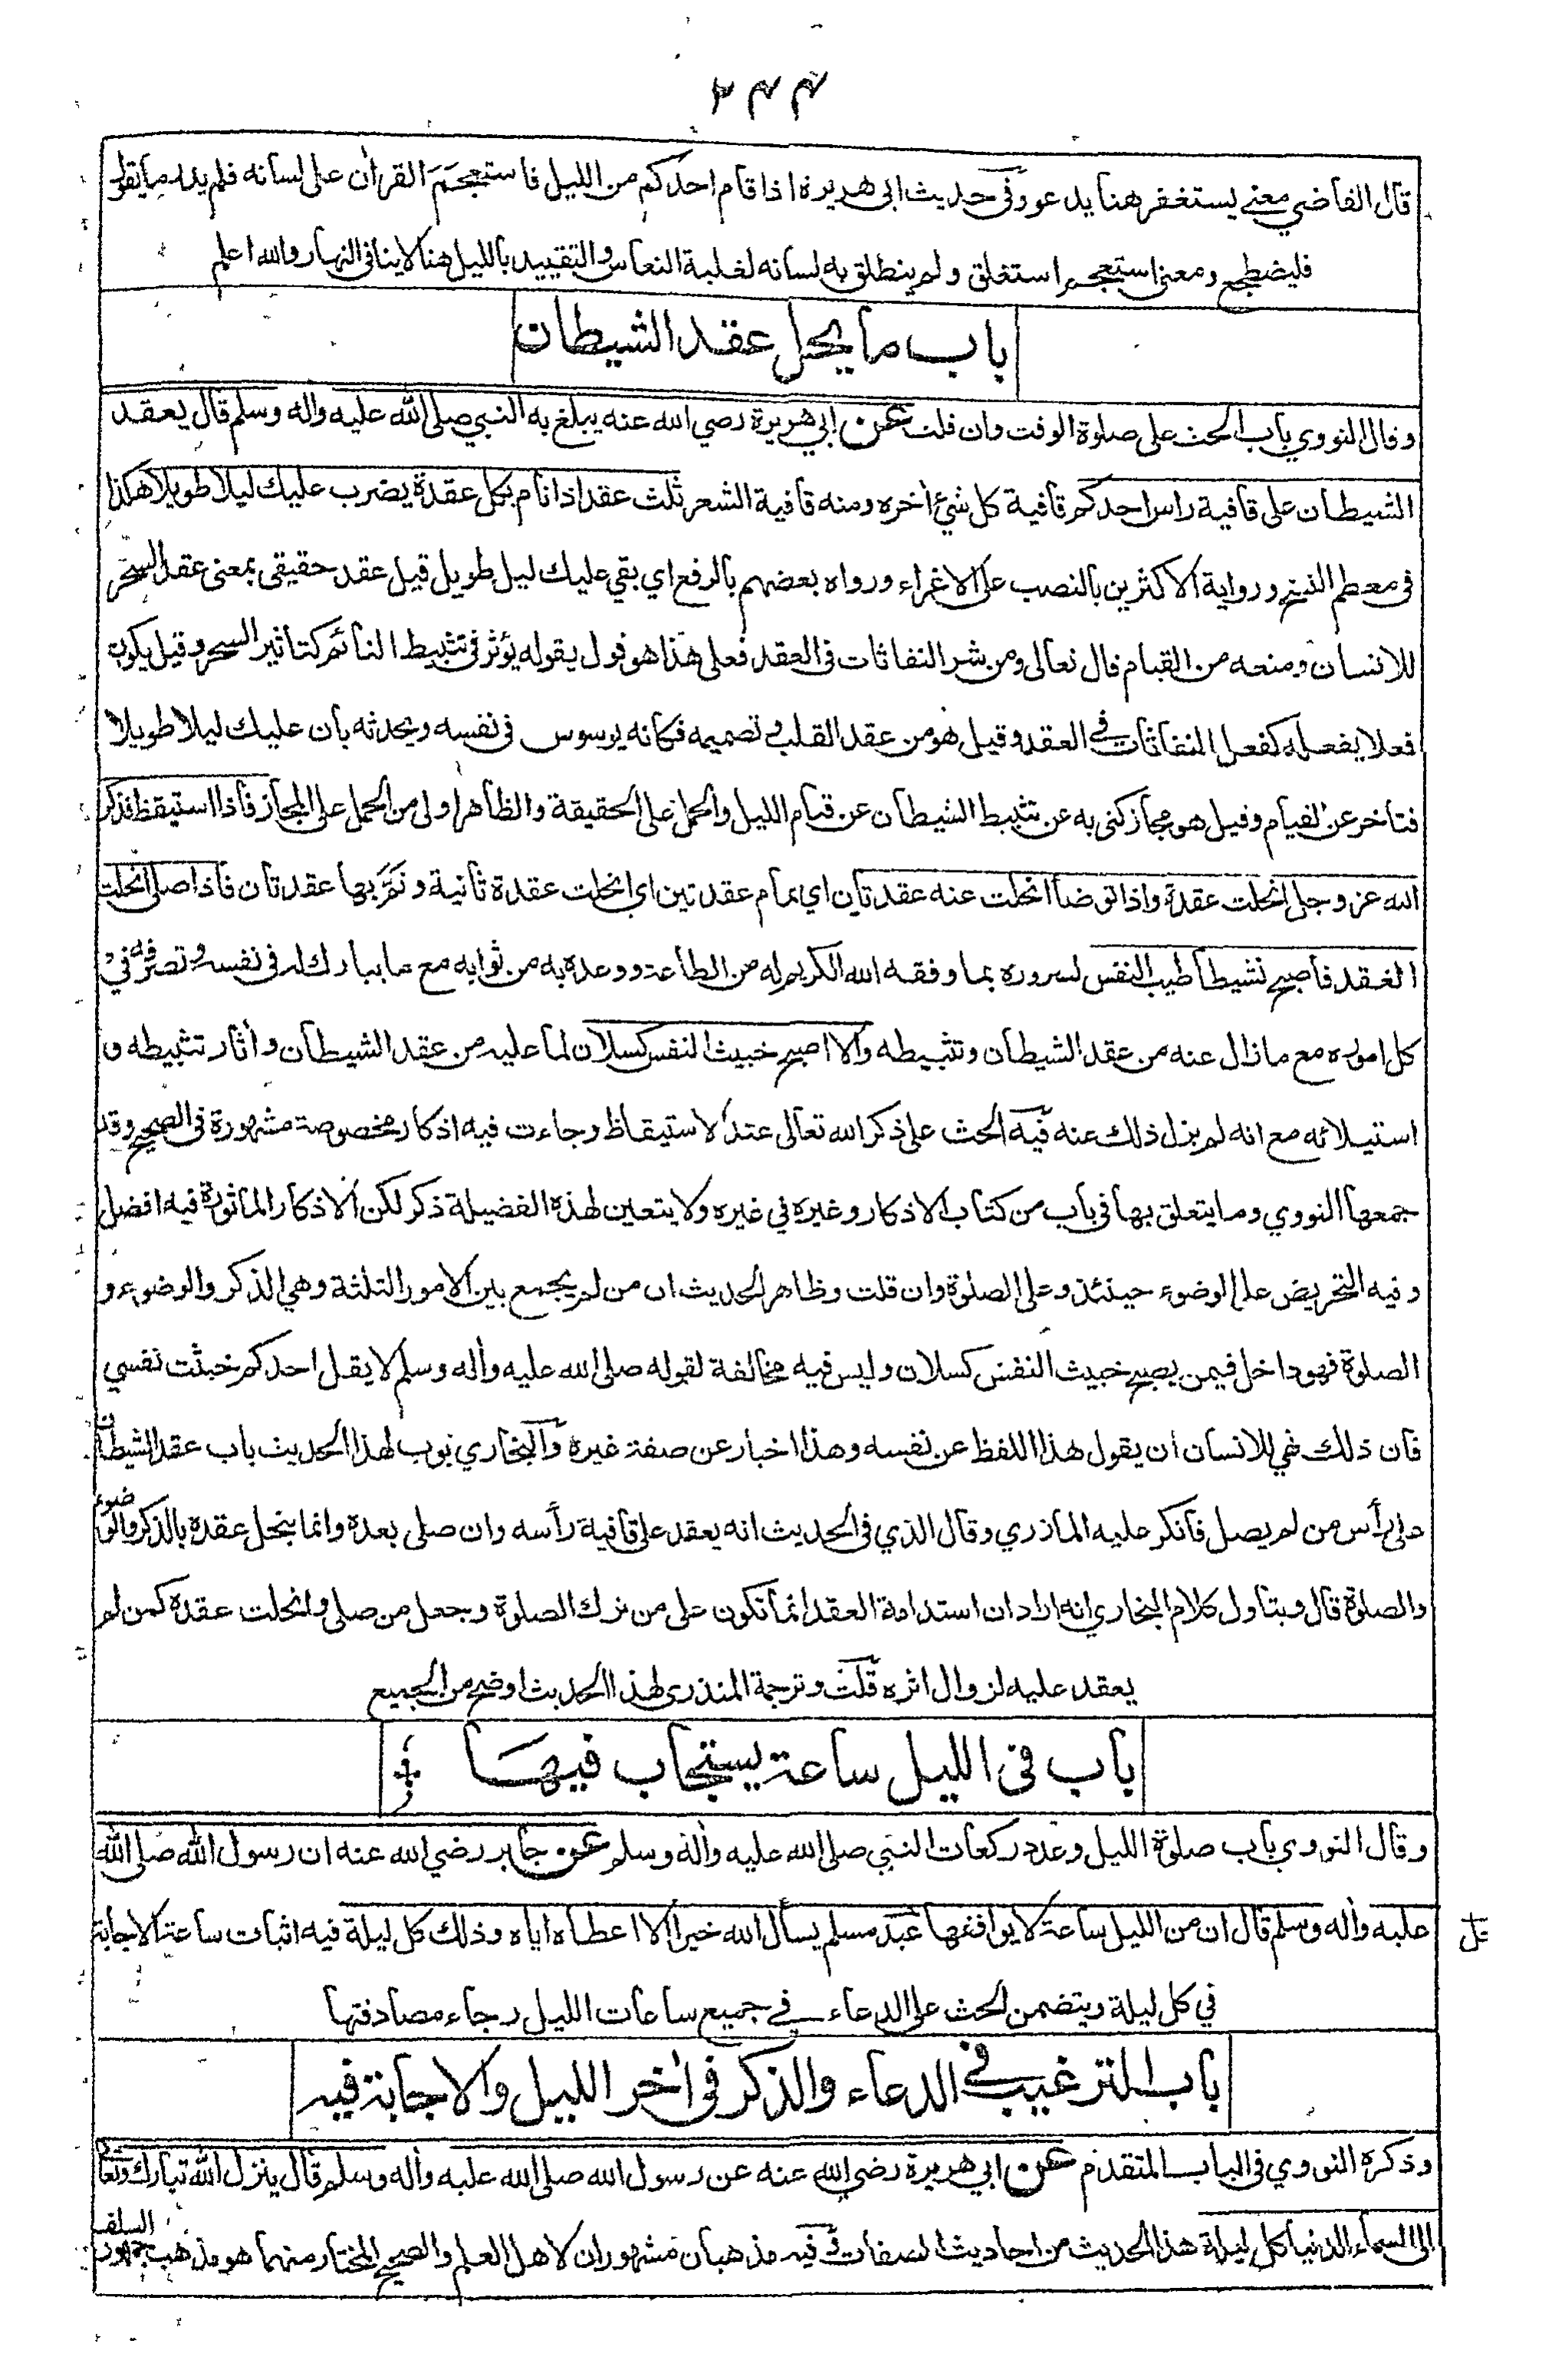 ٢٤٤
قال القاضي معنى يستغفر هنا يدعو وفي حديث ابى هريرة اذا قام احدكم من الليل فاستعجم القراٰن على لسانه فلم يدر ما يقول
فليضطجع ومعنى استعجم استغلق ولم ينطلق به لسانه لغلبة النعاس والتقييد بالليل هنا لا ينافى النهار والله اعلم
باب ما يحل عقد الشيطان
وقال النووي باب الحث على صلوة الوقت وان قلت عن ابي هريرة رضي الله عنه يبلغ به النبي صلى الله عليه واٰله وسلم قال يعقد
الشيطان على قافية راس احدكم قافية كل شيء اٰخره ومنه قافية الشعر ثلث عقد اذا نام بكل عقدة يضرب عليك ليلا طويلا هكذا
فى معظم النسخ ورواية الاكثرين بالنصب على الاغراء ورواه بعضهم بالرفع اي بقي عليك ليل طويل قيل عقد حقيقى بمعنى عقد السحر
للانسان ومنعه من القيام قال تعالى ومن شر النفاثات فى العقد فعلى هذا هو قول يقوله يؤثر فى تثبيط النائم كتاثير السحر وقيل يكون
فعلا يفعله كفعل النفاثات في العقد وقيل هو من عقد القلب وتصميمه فكانه يوسوس فى نفسه ويحدثه بان عليك ليلا طويلا
فتاخر عن القيام وقيل هو مجاز كنى به عن تثبيط الشيطان عن قيام الليل والحمل على الحقيقة والظاهر اولى من الحمل على المجاز فاذا استيقظ فذكر
الله عز وجل انحلت عقدة واذا توضأ انحلت عنه عقدتان اي تمام عقدتين اي انحلت عقدة ثانية وتم بها عقدتان فاذا صلى انحلت
العقد فاصبح نشيطا طيب النفس لسروره بما وفقه الله الكريم له من الطاعة ووعده به من ثوابه مع ما يبارك له فى نفسه وتصرفه في
كل اموره مع ما زال عنه من عقد الشيطان وتثبيطه والا اصبح خبيث النفس كسلان لما عليه من عقد الشيطان واٰثار تثبيطه و
استيلائه مع انه لم يزل ذلك عنه فيه الحث على ذكر الله تعالى عند الاستيقاظ وجاءت فيه اذكار مخصوصة مشهورة فى الصحيح وقد
جمعها النووي وما يتعلق بها فى باب من كتاب الاذكار وغيره في غيره ولا يتعين لهذه الفضيلة ذكر لكن الاذكار الماثورة فيه افضل
وفيه التحريض على الوضوء حينئذ وعلى الصلوة وان قلت وظاهر الحديث ان من لم يجمع بين الامور الثلثة وهي الذكر والوضوء و
الصلوة فهو داخل فيمن يصبح خبيث النفس كسلان وليس فيه مخالفة لقوله صلى الله عليه واٰله وسلم لا يقل احدكم خبثت نفسي
فان ذلك نهي للانسان ان يقول هذا اللفظ عن نفسه وهذا اخبار عن صفة غيره والبخاري بوب لهذا الحديث باب عقد الشيطان
على رأس من لم يصل فانكر عليه المازري وقال الذي فى الحديث انه يعقد على قافية رأسه وان صلى بعده وانما ينحل عقده بالذكر والوضوء
والصلوة قال ويتاول كلام البخاري انه اراد ان استدامة العقد انما تكون على من ترك الصلوة وجعل من صلى وانحلت عقده كمن لم
يعقد عليه لزوال اثره قلت وترجمة المنذرى لهذا الحديث اوضح من الجميع
باب فى الليل ساعة يستجاب فيها
وقال النووي باب صلوة الليل وعدد ركعات النبي صلى الله عليه واٰله وسلم عن جابر رضي الله عنه ان رسول الله صلى الله
عليه واٰله وسلم قال ان من الليل ساعة لا يوافقها عبد مسلم يسأل الله خيرا الا اعطاه اياه وذلك كل ليلة فيه اثبات ساعة الاجابة
في كل ليلة ويتضمن الحث على الدعاء في جميع ساعات الليل رجاء مصادفتها
باب الترغيب في الدعاء والذكر فى اٰخر الليل والاجابة فيه
وذكره النووي فى الباب المتقدم عن ابي هريرة رضي الله عنه عن رسول الله صلى الله عليه واٰله وسلم قال ينزل الله تبارك وتعالى
الى السماء الدنيا كل ليلة هذا الحديث من احاديث الصفات وفيه مذهبان مشهوران لاهل العلم والصحيح المختار منهما هو مذهب جمهور السلف